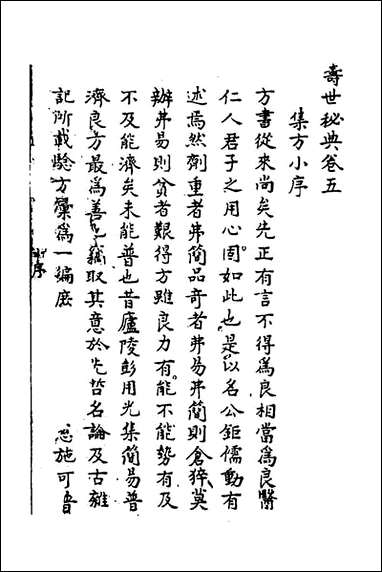 壽世秘典卷五
集方小序
方書從來尚矣先正有言不得為良相當為良醫
仁人君子之用心固如此也是以名公鉅儒動有
述焉然劑重者弗簡品奇者弗易弗簡則倉猝莫
辦弗易則貧者艱得方雖良力有能不能勢有及
不及能濟矣未能普也昔廬陵彭用光集簡易普
濟良方最為善也竊取其意於先哲名論及古雜
記所載驗方彙為一編庶 施可吾
序